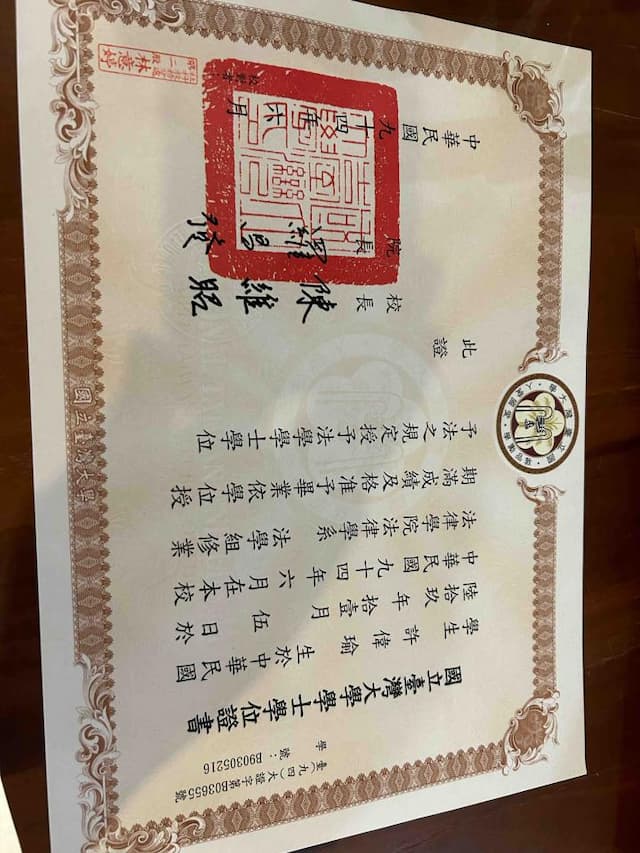 臺(九四)大證字第B03655號
學號：B90305216
國立臺灣大學學士學位證書
學生 許偉瑜 生於中華民國
陸拾玖年拾壹月伍日於
中華民國九十四年六月在本校
法律學院法律學系 法學組修業
期滿成績及格准予畢業依學位授
予法之規定授予法學學士學位
此證
校長 陳維昭
院長 羅昌發
中華民國九十四年六月
國立臺灣大學